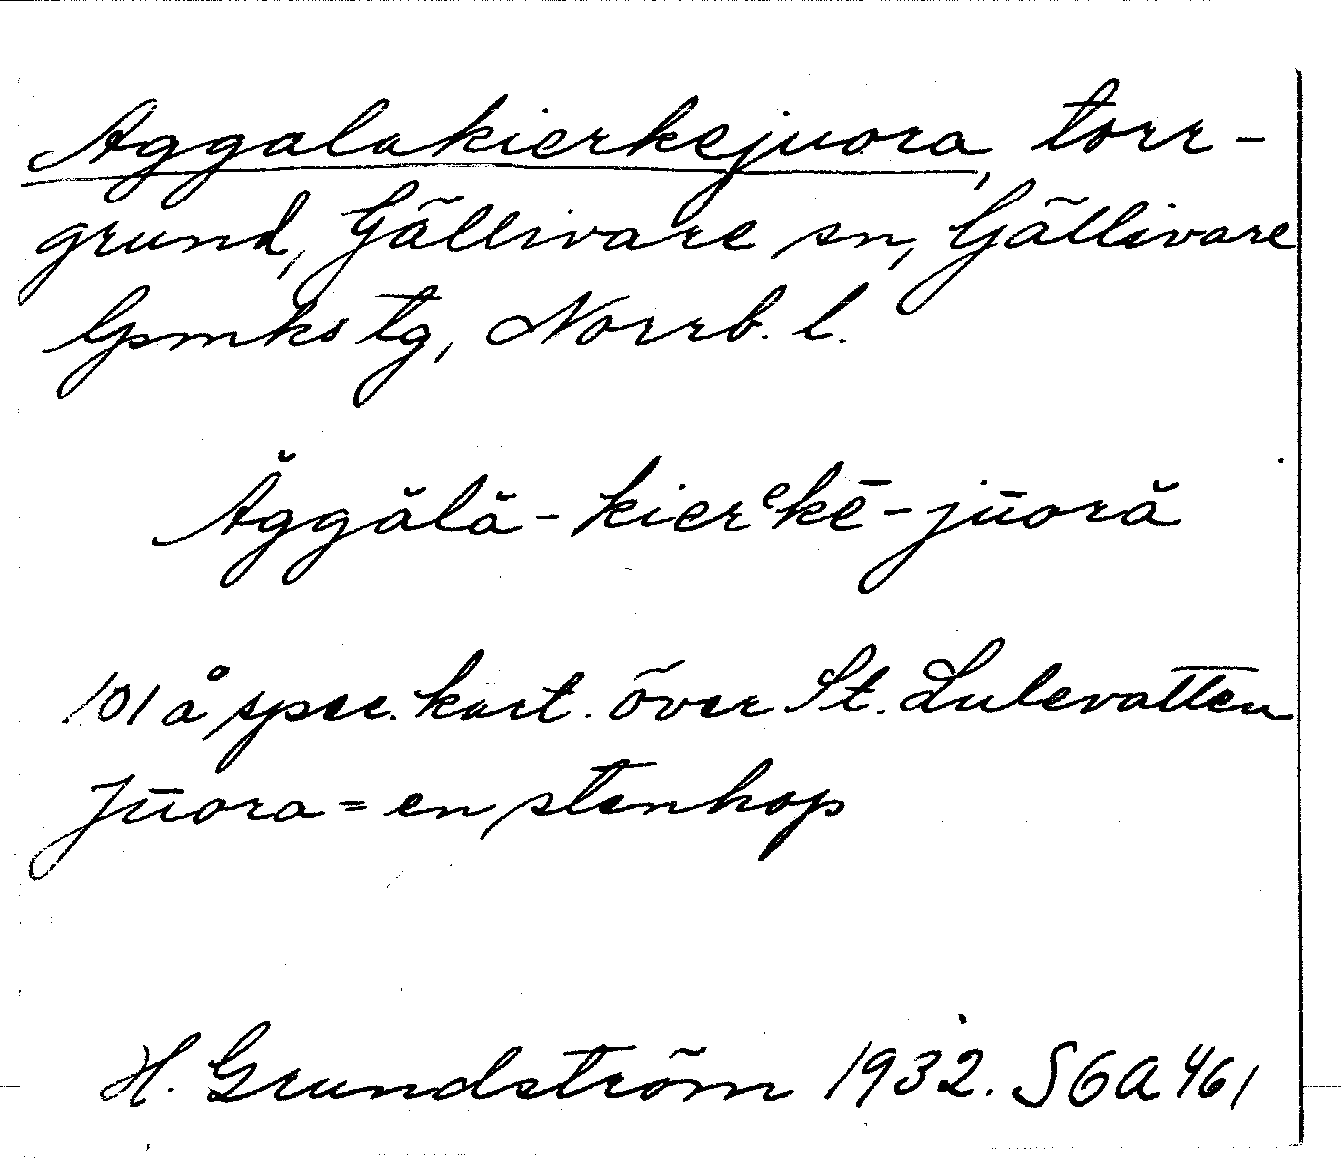 Aggalakierkejuora, torr-
grund, Gällivare sn, Gällivare
Gsmks tg, Norrb. l.
Ăggălă-kierᵉkē-jūoră
101 å spec. kart. över St. Lulevatten
Jūora = en stenhop
H. Grundström 1932. SGA 461